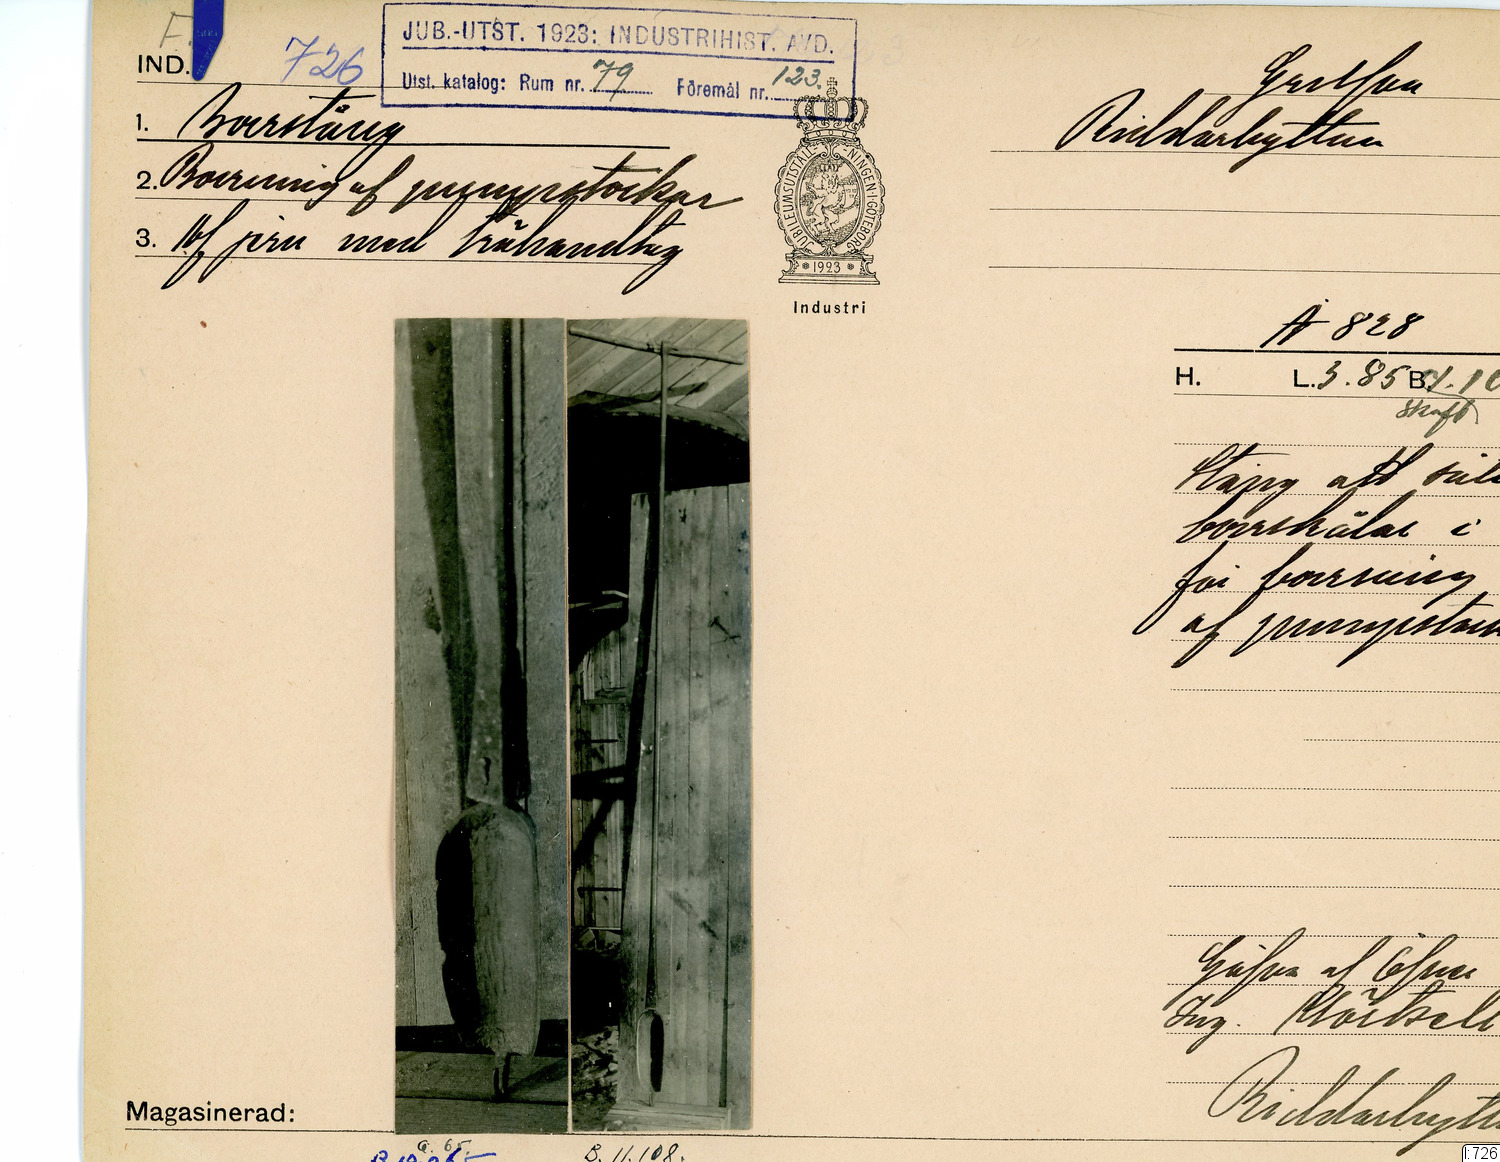 F.
IND. 726
JUB.-UTST. 1923: INDUSTRIHIST. AVD.
Utst. katalog: Rum nr. 79 Föremål nr. 123.
1. Borrstång
2. Borrning af pumpstockar
3. Af järn med trähandtag
JUBILEUMSUTSTÄLLNINGEN I GÖTEBORG
* 1923 *
Industri
Riddarhyttan
A 828
H. L. 3.85 B.
Skaft
Stång att
borrskålar i
för borrning
af pumpstock
Gåfva af Öfver
Ing.
Riddarhytt
Magasinerad:
G. 65.
B. 11.108.
I:726